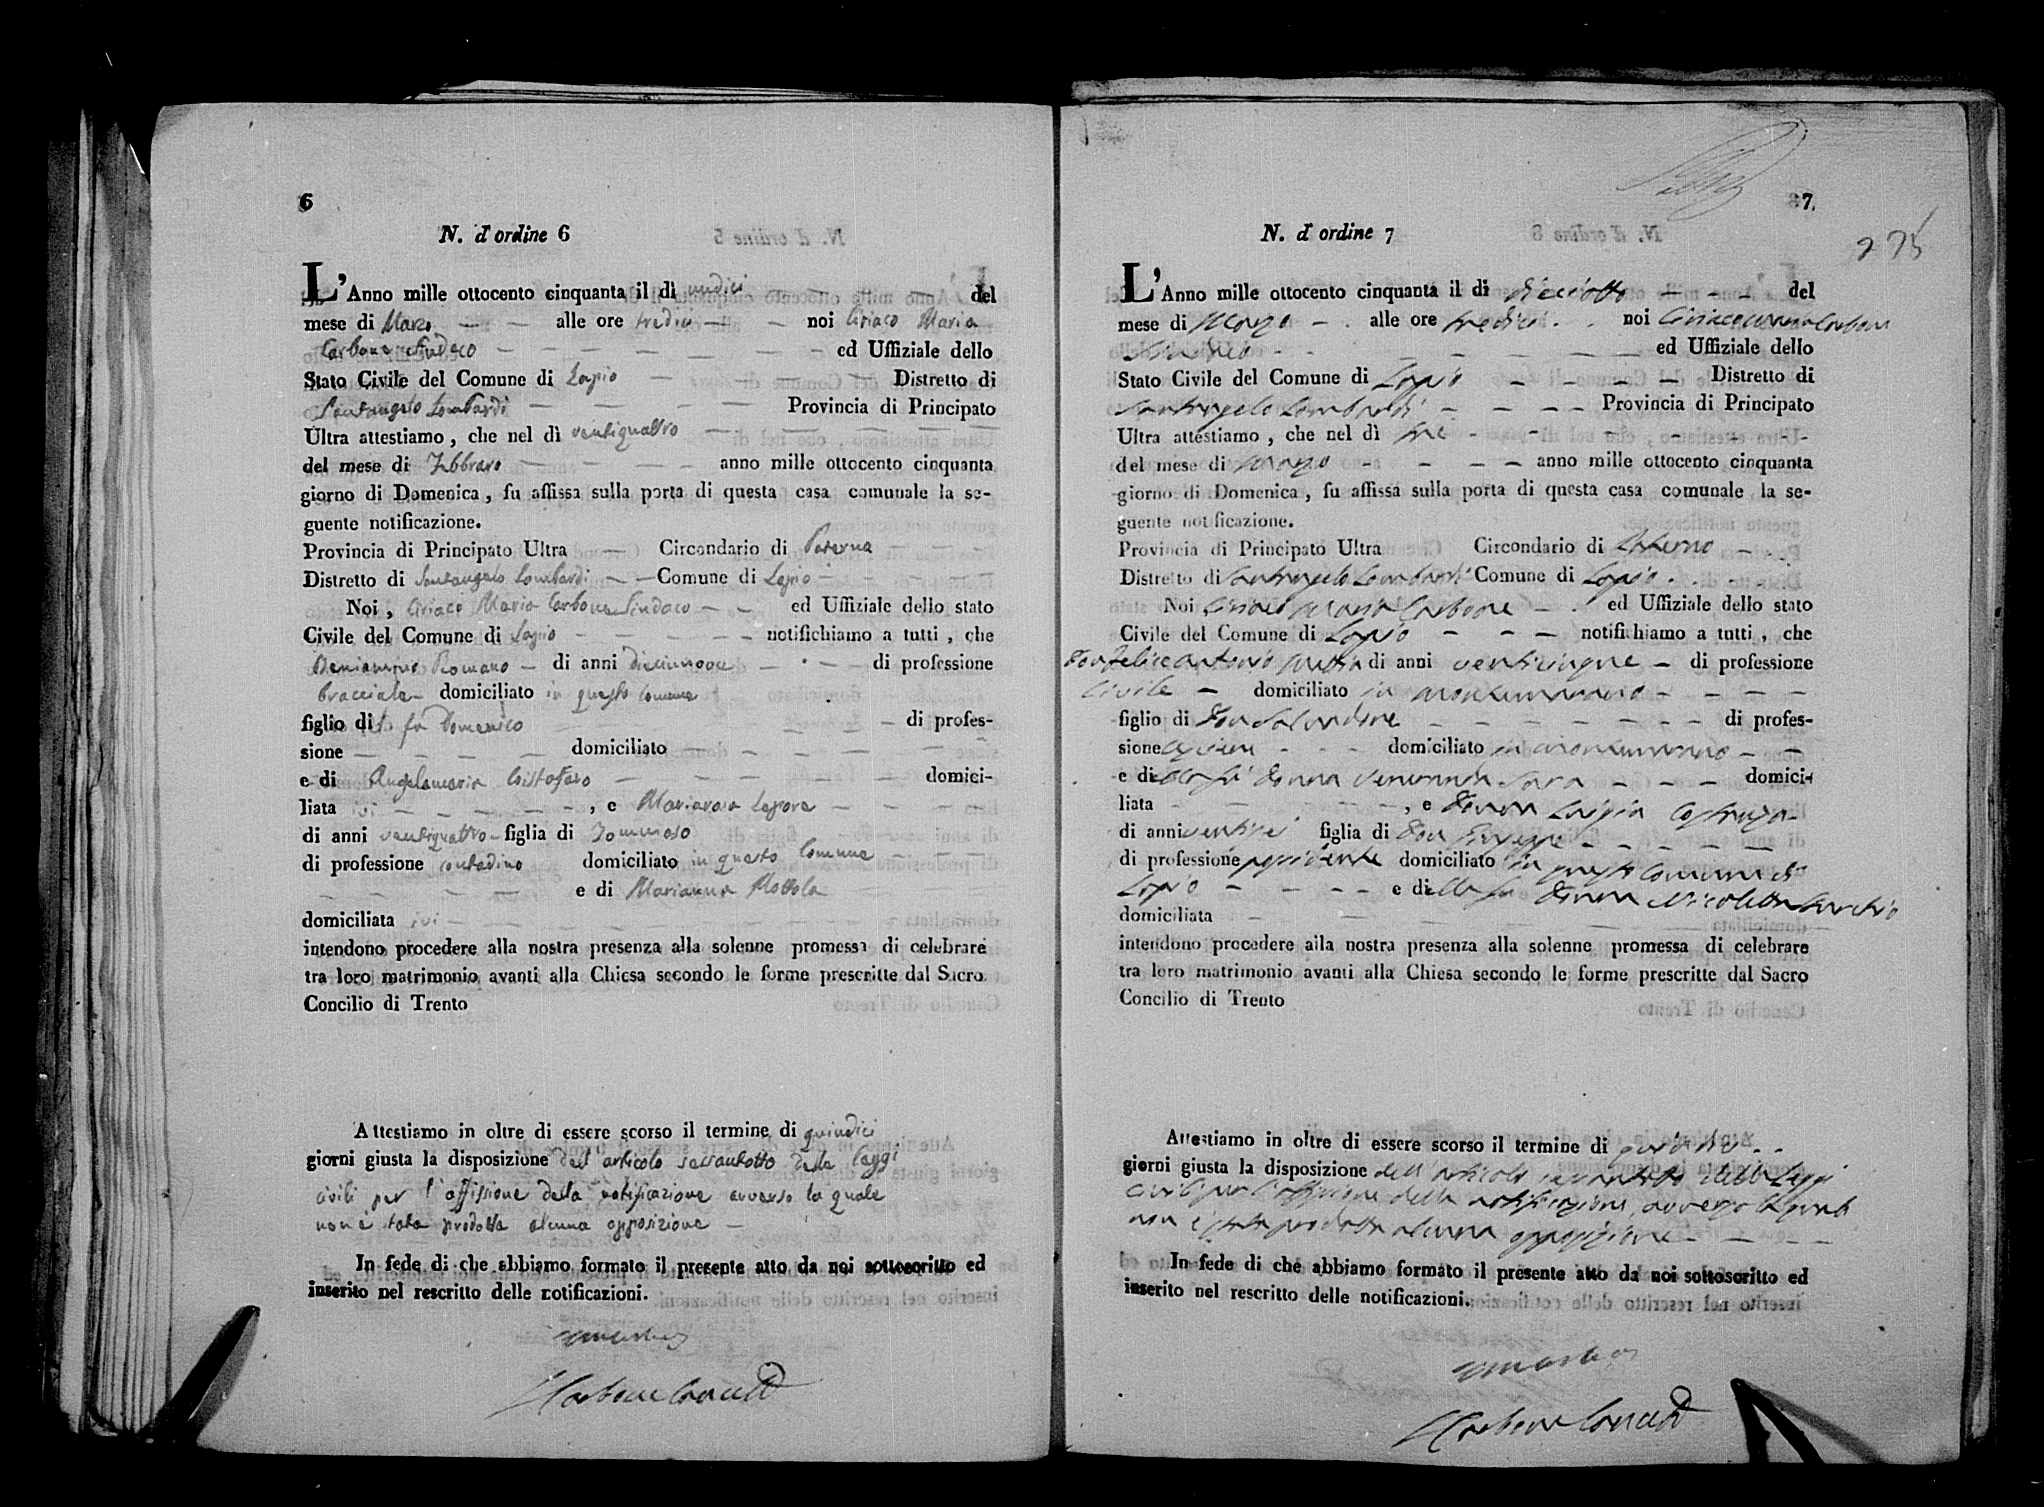 6
N. d'ordine 6
L'Anno mille ottocento cinquanta il dì undici del
mese di Marzo alle ore tredici noi Ciriaco Maria
Carbone Sindaco ed Uffiziale dello
Stato Civile del Comune di Lapio Distretto di
Santangelo Lombardi Provincia di Principato
Ultra attestiamo, che nel dì ventiquattro
del mese di Febbraro anno mille ottocento cinquanta
giorno di Domenica, fu affissa sulla porta di questa casa comunale la se-
guente notificazione.
Provincia di Principato Ultra Circondario di Paterna
Distretto di Santangelo Lombardi Comune di Lapio
Noi, Ciriaco Maria Carbone Sindaco ed Uffiziale dello stato
Civile del Comune di Lapio notifichiamo a tutti, che
Beniamino Romano di anni diecinnove di professione
bracciale domiciliato in questo Comune
figlio di fu Domenico di profes-
sione domiciliato
e di Angelamaria Cristofaro domici-
liata ivi, e Mariarosa Lepore
di anni ventiquattro figlia di Tommaso
di professione contadino domiciliato in questo Comune
e di Marianna Mottola
domiciliata ivi
intendono procedere alla nostra presenza alla solenne promessa di celebrare
tra loro matrimonio avanti alla Chiesa secondo le forme prescritte dal Sacro
Concilio di Trento
Attestiamo in oltre di essere scorso il termine di quindici
giorni giusta la disposizione dell'articolo sessantotto delle leggi
civili per l'affissione della notificazione avverso la quale
non è stata prodotta alcuna opposizione
In fede di che abbiamo formato il presente atto da noi sottoscritto ed
inserito nel rescritto delle notificazioni.
Carbone
7
275
N. d'ordine 7
L'Anno mille ottocento cinquanta il dì dieciotto del
mese di Marzo alle ore tredici noi Ciriaco Maria Carbone
Sindaco ed Uffiziale dello
Stato Civile del Comune di Lapio Distretto di
Santangelo Lombardi Provincia di Principato
Ultra attestiamo, che nel dì tre
del mese di Marzo anno mille ottocento cinquanta
giorno di Domenica, fu affissa sulla porta di questa casa comunale la se-
guente notificazione.
Provincia di Principato Ultra Circondario di Paterno
Distretto di Santangelo Lombardi Comune di Lapio
Noi Ciriaco Maria Carbone ed Uffiziale dello stato
Civile del Comune di Lapio notifichiamo a tutti, che
Don Felice Antonio di anni venticinque di professione
Civile domiciliato in Montemarano
figlio di Don Salvadore di profes-
sione domiciliato in Montemarano
e di della fu Donna Veneranda domici-
liata, e Donna Luigia
di anni ventisei figlia di Don Giuseppe
di professione possidente domiciliato in questo Comune di
Lapio e di della fu Donna Nicoletta
domiciliata
intendono procedere alla nostra presenza alla solenne promessa di celebrare
tra loro matrimonio avanti alla Chiesa secondo le forme prescritte dal Sacro
Concilio di Trento
Attestiamo in oltre di essere scorso il termine di quindici
giorni giusta la disposizione dell'articolo sessantotto delle Leggi
civili per l'affissione della notificazione, avverso la quale
non è stata prodotta alcuna opposizione
In fede di che abbiamo formato il presente atto da noi sottoscritto ed
inserito nel rescritto delle notificazioni.
Carbone